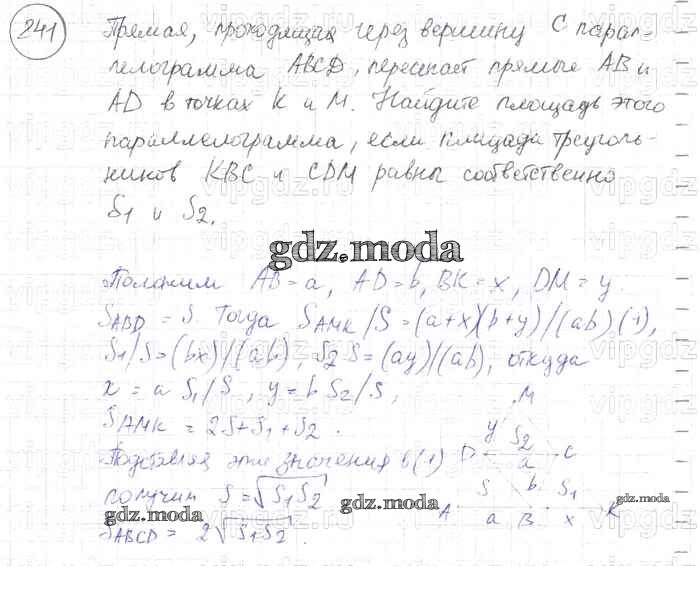 241
Прямая, проходящая через вершину C парал-
лелограмма ABCD, пересекает прямые AB и
AD в точках K и M. Найдите площадь этого
параллелограмма, если площади треуголь-
ников KBC и CDM равны соответственно
S1 и S2.
gdz.moda
Положим AB = a, AD = b, BK = x, DM = y.
SABD = S. Тогда SAMK/S = (a+x)(b+y)/(ab) (1),
S1/S = (bx)/(ab), S2 S = (ay)/(ab), откуда
x = a S1/S, y = b S2/S,
SAMK = 2S + S1 + S2.
Подставляя эти значения в (1)
получим S = √S1S2
gdz.moda
SABCD = 2√S1S2.
M
y S2
D a C
S b S1
gdz.moda
A a B x K
gdz.moda